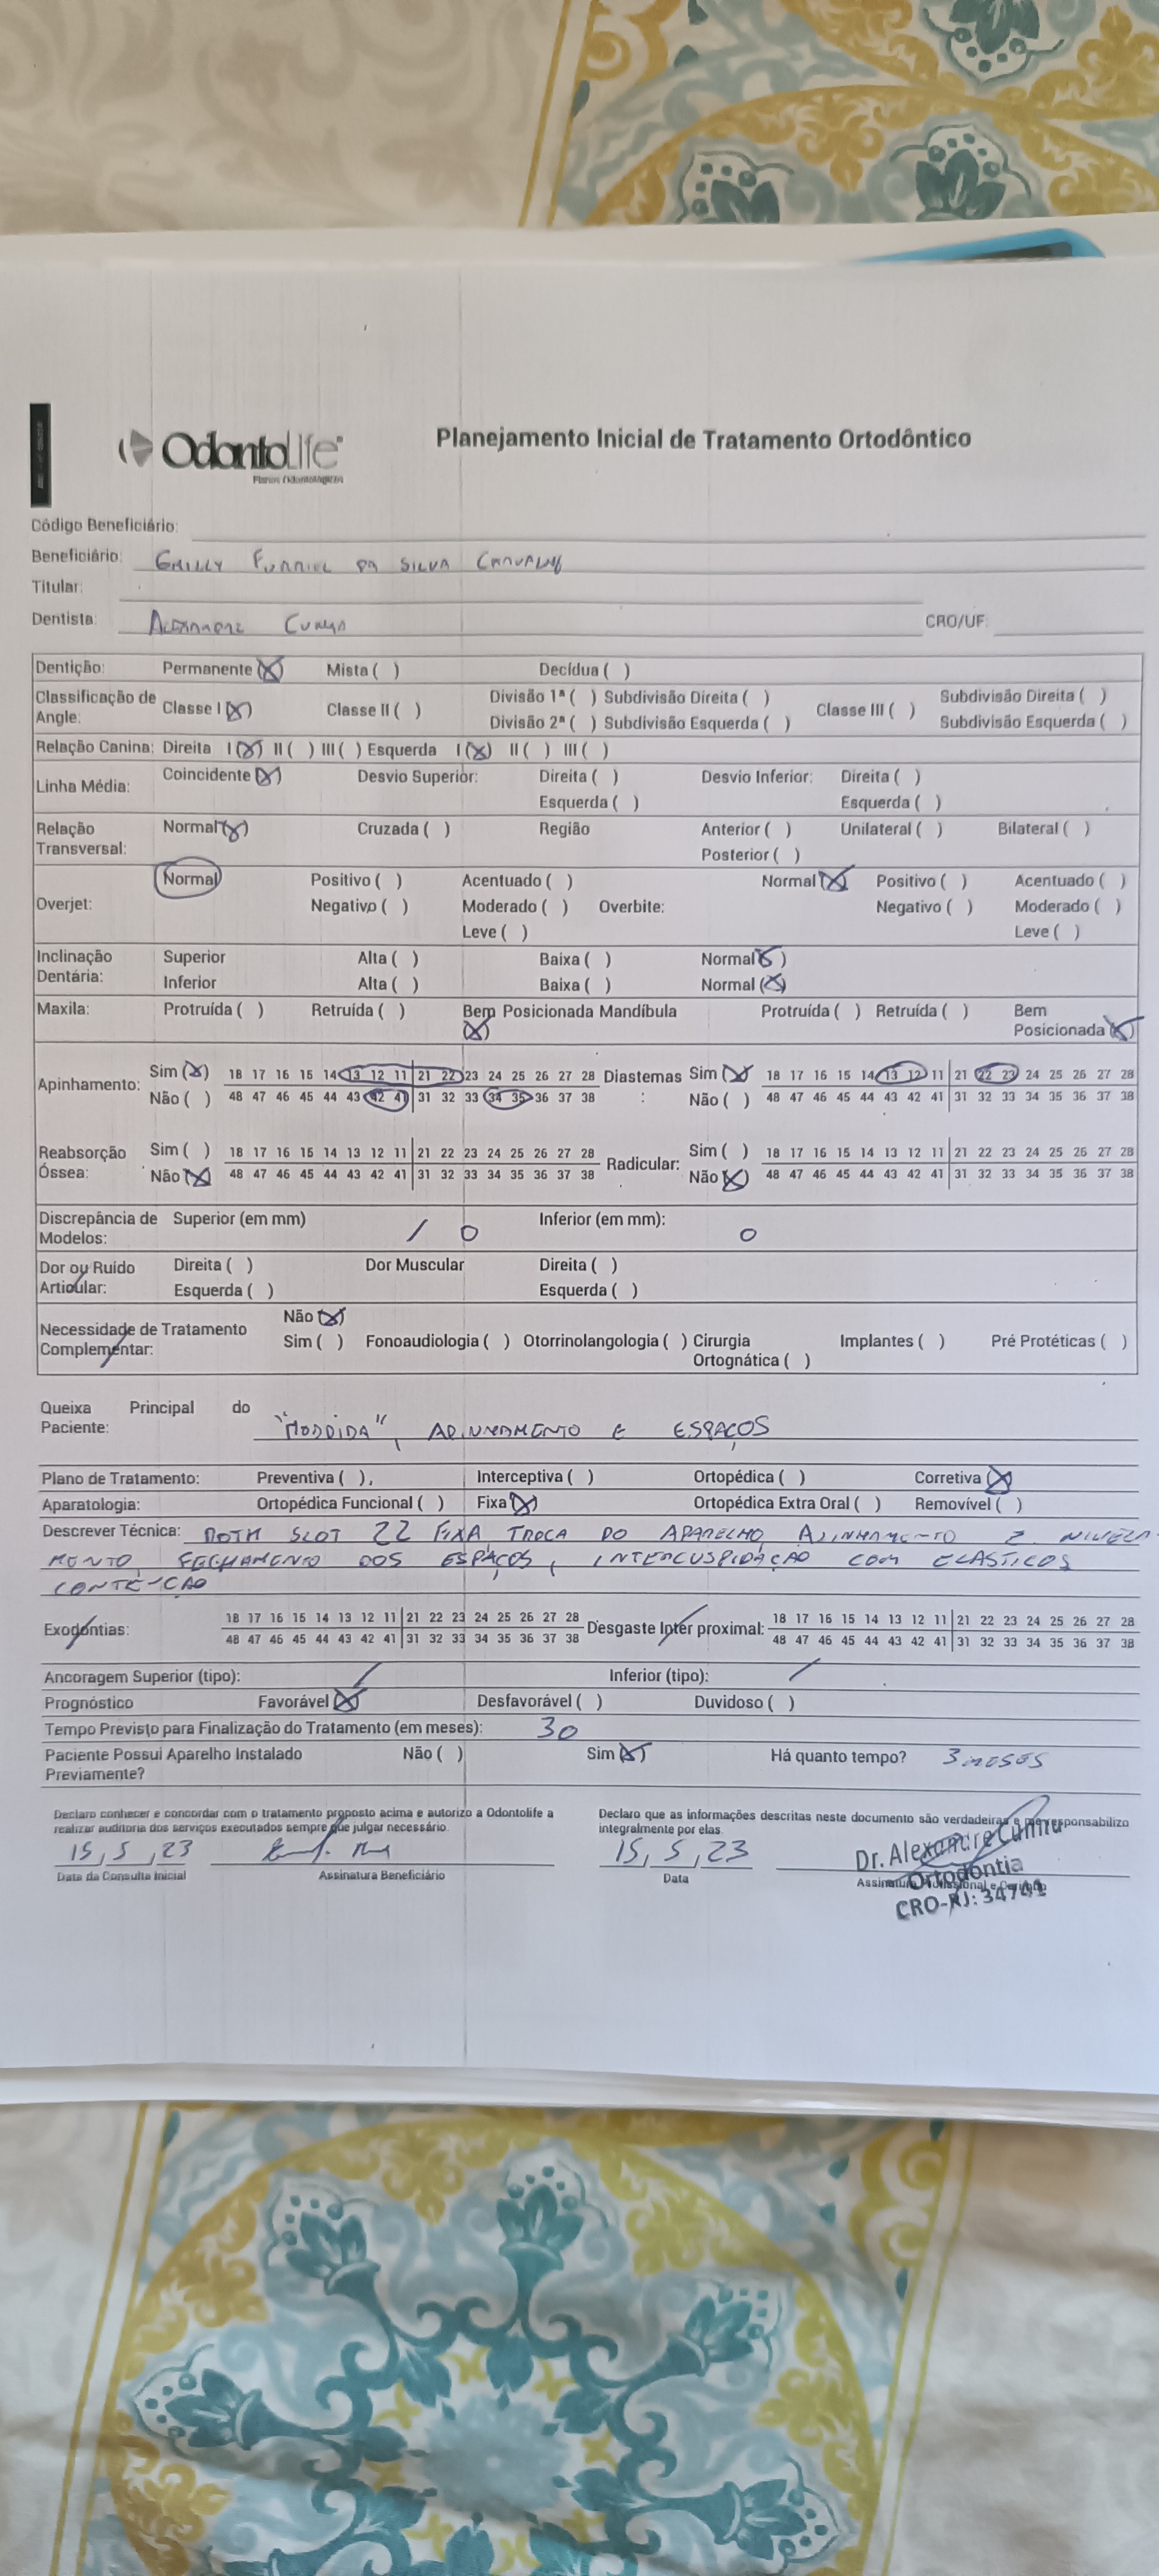 OdontoLife
Planos Odontológicos
Planejamento Inicial de Tratamento Ortodôntico
Código Beneficiário:
Beneficiário: DA SILVA CARVALHO
Titular:
Dentista: ALEXANDRE CUNHA CRO/UF:
Dentição: Permanente (X) Mista ( ) Decídua ( )
Classificação de Angle: Classe I (X) Classe II ( ) Divisão 1ª ( ) Subdivisão Direita ( ) Classe III ( ) Subdivisão Direita ( )
Divisão 2ª ( ) Subdivisão Esquerda ( ) Subdivisão Esquerda ( )
Relação Canina: Direita I (X) II ( ) III ( ) Esquerda I (X) II ( ) III ( )
Linha Média: Coincidente (X) Desvio Superior: Direita ( ) Desvio Inferior: Direita ( )
Esquerda ( ) Esquerda ( )
Relação Transversal: Normal (X) Cruzada ( ) Região Anterior ( ) Unilateral ( ) Bilateral ( )
Posterior ( )
Overjet: Normal Positivo ( ) Acentuado ( ) Overbite: Normal (X) Positivo ( ) Acentuado ( )
Negativo ( ) Moderado ( ) Negativo ( ) Moderado ( )
Leve ( ) Leve ( )
Inclinação Dentária: Superior Alta ( ) Baixa ( ) Normal (X)
Inferior Alta ( ) Baixa ( ) Normal (X)
Maxila: Protruída ( ) Retruída ( ) Bem Posicionada (X) Mandíbula Protruída ( ) Retruída ( ) Bem Posicionada (X)
Apinhamento: Sim (X) 18 17 16 15 14 13 12 11 21 22 23 24 25 26 27 28 Diastemas: Sim (X) 18 17 16 15 14 13 12 11 21 22 23 24 25 26 27 28
Não ( ) 48 47 46 45 44 43 42 41 31 32 33 34 35 36 37 38 Não ( ) 48 47 46 45 44 43 42 41 31 32 33 34 35 36 37 38
Reabsorção Óssea: Sim ( ) 18 17 16 15 14 13 12 11 21 22 23 24 25 26 27 28 Radicular: Sim ( ) 18 17 16 15 14 13 12 11 21 22 23 24 25 26 27 28
Não (X) 48 47 46 45 44 43 42 41 31 32 33 34 35 36 37 38 Não (X) 48 47 46 45 44 43 42 41 31 32 33 34 35 36 37 38
Discrepância de Modelos: Superior (em mm) / 0 Inferior (em mm): 0
Dor ou Ruído Articular: Direita ( ) Dor Muscular Direita ( )
Esquerda ( ) Esquerda ( )
Necessidade de Tratamento Complementar: Não (X)
Sim ( ) Fonoaudiologia ( ) Otorrinolangologia ( ) Cirurgia Ortognática ( ) Implantes ( ) Pré Protéticas ( )
Queixa Principal do Paciente: "MORDIDA", APINHAMENTO E ESPAÇOS
Plano de Tratamento: Preventiva ( ), Interceptiva ( ) Ortopédica ( ) Corretiva (X)
Aparatologia: Ortopédica Funcional ( ) Fixa (X) Ortopédica Extra Oral ( ) Removível ( )
Descrever Técnica: ROTH SLOT 22 FIXA TROCA DO APARELHO ALINHAMENTO E NIVELA-
MENTO FECHAMENTO DOS ESPAÇOS, INTERCUSPIDAÇÃO COM ELASTICOS
CONTENÇÃO
Exodontias: 18 17 16 15 14 13 12 11 21 22 23 24 25 26 27 28 Desgaste Inter proximal: 18 17 16 15 14 13 12 11 21 22 23 24 25 26 27 28
48 47 46 45 44 43 42 41 31 32 33 34 35 36 37 38 48 47 46 45 44 43 42 41 31 32 33 34 35 36 37 38
Ancoragem Superior (tipo): / Inferior (tipo): /
Prognóstico Favorável (X) Desfavorável ( ) Duvidoso ( )
Tempo Previsto para Finalização do Tratamento (em meses): 30
Paciente Possui Aparelho Instalado Previamente? Não ( ) Sim (X) Há quanto tempo? 3 MESES
Declaro conhecer e concordar com o tratamento proposto acima e autorizo a Odontolife a
realizar auditoria dos serviços executados sempre que julgar necessário.
Declaro que as informações descritas neste documento são verdadeiras e me responsabilizo
integralmente por elas.
15, 5, 23
Data da Consulta Inicial
Assinatura Beneficiário
15, 5, 23
Data
Dr. Alexandre Cunha
Ortodontia
CRO-RJ: 34741